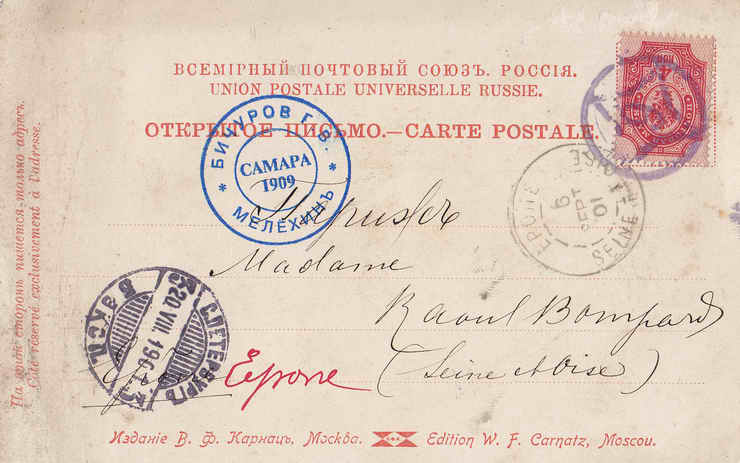 ВСЕМІРНЫЙ ПОЧТОВЫЙ СОЮЗЪ. РОССІЯ.
UNION POSTALE UNIVERSELLE RUSSIE.
ОТКРЫТОЕ ПИСЬМО.—CARTE POSTALE.
На этой сторонѣ пишется только адресъ.
Côté réservé exclusivement à l'adresse.
САМАРА
1909
МЕЛЕХИНЪ
4
EPONE
6
SEPT
01
SEINE ET OISE
Madame
Raoul Bompard
Épone (Seine & Oise)
С.ПЕТЕРБУРГЪ
20 VIII 190
3 ЭКСП.
Изданіе В. Ф. Карнацъ, Москва. Edition W. F. Carnatz, Moscou.